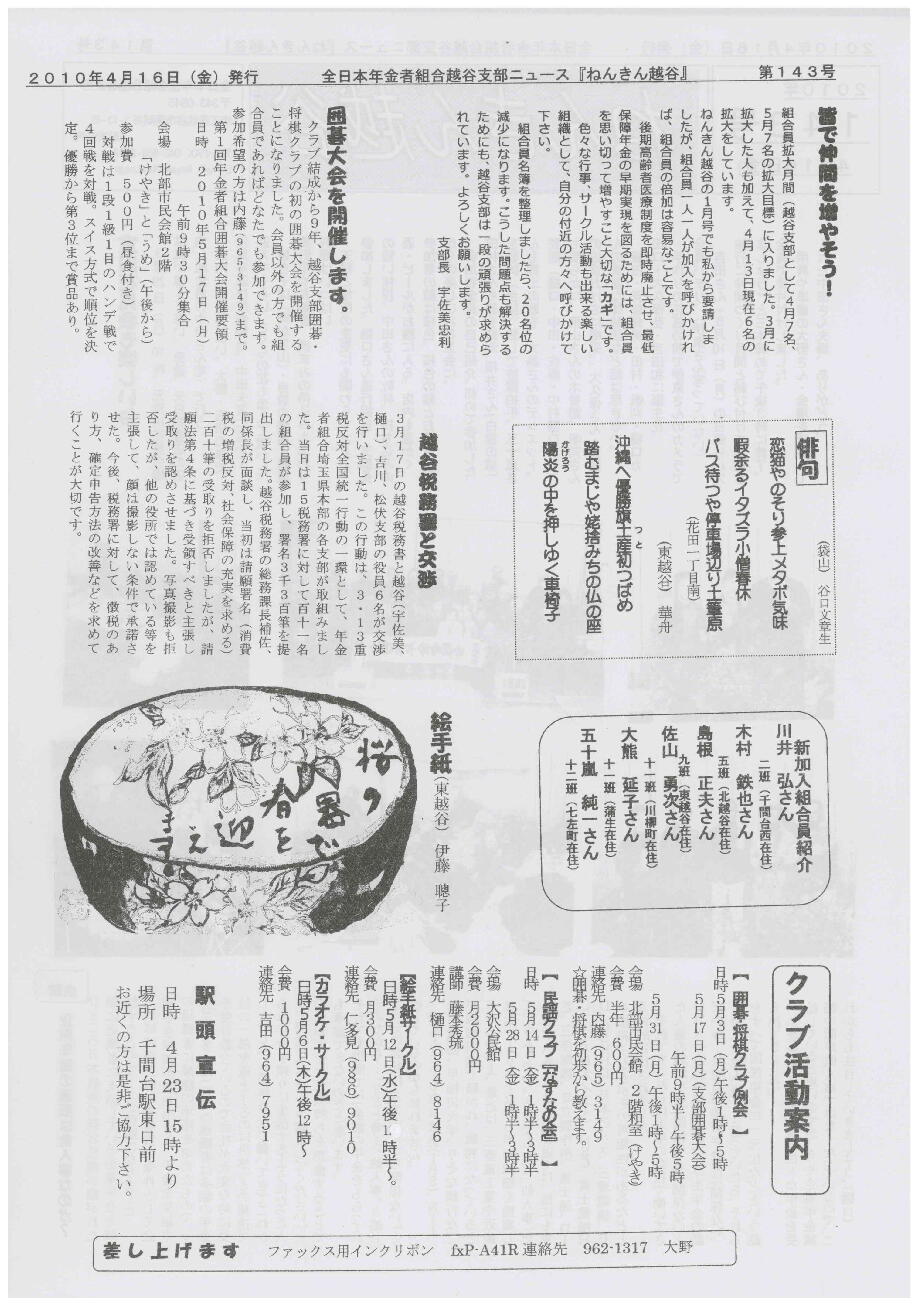 2010年4月16日(金)発行
全日本年金者組合越谷支部ニュース『ねんきん越谷』
第143号
皆で仲間を増やそう!
組合員拡大月間(越谷支部として4月7名、
5月7名の拡大目標)に入りました。3月に
拡大した人も加えて、4月13日現在6名の
拡大をしています。
ねんきん越谷の1月号でも私から要請しま
したが、組合員一人一人が加入を呼びかけれ
ば、組合員の倍加は容易なことです。
後期高齢者医療制度を即時廃止させ、最低
保障年金の早期実現を図るためには、組合員
を思い切って増やすこと大切な「カギ」です。
色々な行事、サークル活動も出来る楽しい
組織として、自分の付近の方々へ呼びかけて
下さい。
組合員名簿を整理しましたら、20名位の
減少になります。こうした問題点も解決する
ためにも、越谷支部は一段の頑張りが求めら
れています。よろしくお願いします。
支部長 宇佐美忠利
囲碁大会を開催します。
クラブ結成から9年、越谷支部囲碁・
将棋クラブの初の囲碁大会を開催する
ことになりました。会員以外の方でも組
合員であればどなたでも参加できます。
参加希望の方は内藤(965-3149)まで。
第1回年金者組合囲碁大会開催要領
日時 2010年5月17日(月)
午前9時30分集合
会場 北部市民会館2階
「けやき」と「うめ」(午後から)
参加費 500円(昼食付き)
対戦は1段1級1日のハンデ戦で
4回戦を対戦。スイス方式で順位を決
定。優勝から第3位まで賞品あり。
俳句
(袋山) 谷口文章生
恋猫やのそり参上メタボ気味
暇余るイタズラ小僧春休
バス待つや停車場辺り土筆原
(花田一丁目南)
(東越谷) 華舟
沖縄へ優勝旗土産初つばめ
つと
踏むまじや姥捨みちの仏の座
陽炎の中を押しゆく車椅子
かげろう
越谷税務署と交渉
3月17日の越谷税務書と越谷(宇佐美、
樋口)、吉川、松伏支部の役員6名が交渉
を行いました。この行動は、3・13重
税反対全国統一行動の一環として、年金
者組合埼玉県本部の各支部が取組みまし
た。当日は15税務署に対して百十一名
の組合員が参加し、署名3千3百筆を提
出しました。越谷税務署の総務課長補佐、
同係長が面談し、当初は請願署名(消費
税の増税反対、社会保障の充実を求める)
二百十筆の受取りを拒否しましたが、請
願法第4条に基づき受領すべきと主張し
受取りを認めさせました。写真撮影も拒
否したが、他の役所では認めている等を
主張して、顔は撮影しない条件で承諾さ
せた。今後、税務署に対して、徴税のあ
り方、確定申告方法の改善などを求めて
行くことが大切です。
新加入組合員紹介
川井 弘さん
二班(千間台西在住)
木村 鉄也さん
五班(北越谷在住)
島根 正夫さん
九班(東越谷在住)
佐山 勇次さん
十一班(川柳町在住)
大熊 延子さん
十一班(蒲生在住)
五十嵐 純一さん
十二班(七左町在住)
絵手紙(東越谷)伊藤 聰子
桜の
内器で
春を
迎
え
ます
クラブ活動案内
【囲碁・将棋クラブ例会】
日時5月3日(月)午後1時~5時
5月17日(月)(支部囲碁大会)
午前9時半~午後5時
5月31日(月)午後1時~5時
会場 北部市民会館 2階和室(けやき)
会費 半年 600円
連絡先 内藤(965)3149
☆囲碁・将棋を初歩から教えます。
【民謡クラブ「なずなの会」】
日時 5月14日(金)1時半~3時半
5月28日(金)1時半~3時半
会場 大沢公民館
会費 月200円
講師 藤本秀琉
連絡先 樋口(964)8146
【絵手紙サークル】
日時5月12日(水)午後1時半~。
会費 月300円
連絡先 仁多見(986)9010
【カラオケ・サークル】
日時5月6日(木)午後12時~
会費 1000円
連絡先 吉田(964)7951
駅頭宣伝
日時 4月23日15時より
場所 千間台駅東口前
お近くの方は是非ご協力下さい。
差し上げます ファックス用インクリボン fxP-A41R連絡先 962-1317 大野